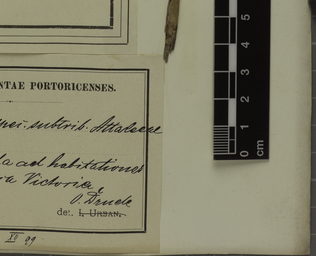 NTAE PORTORICENSES.
subtrib. Attaleae
la ad habitationes
ra Victoria
O. Drude
det. I. URBAN.
XII 99
0 1 2 3 4 5
cm